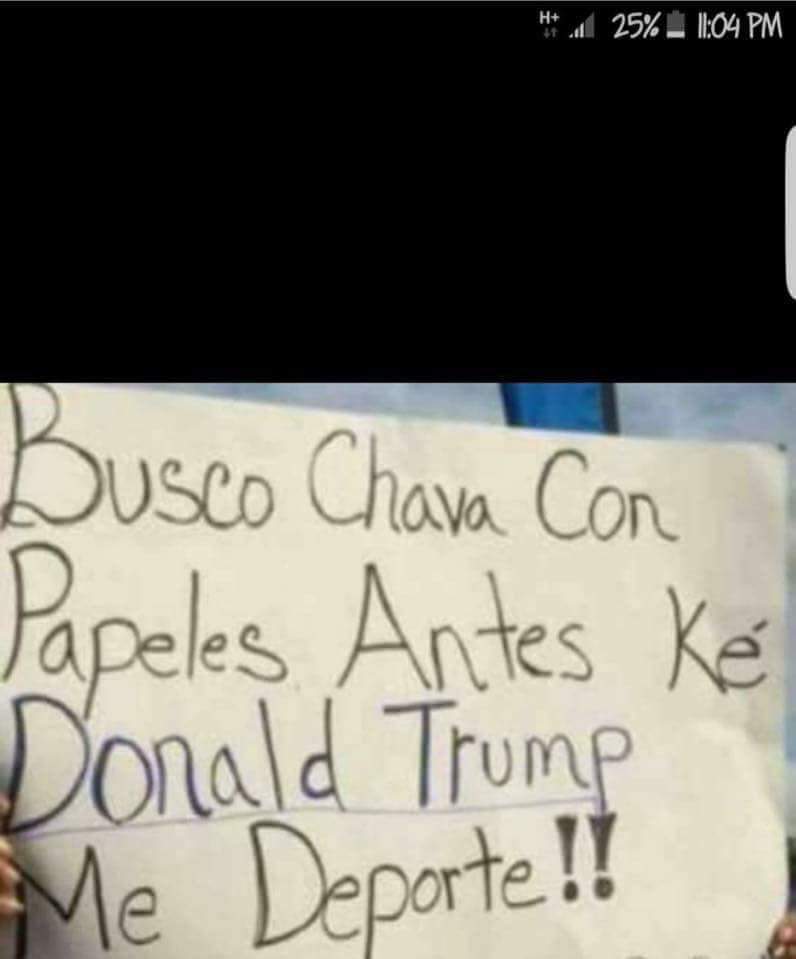 H+ 25% 11:04 PM
Busco Chava Con
Papeles Antes Ké
Donald Trump
Me Deporte!!